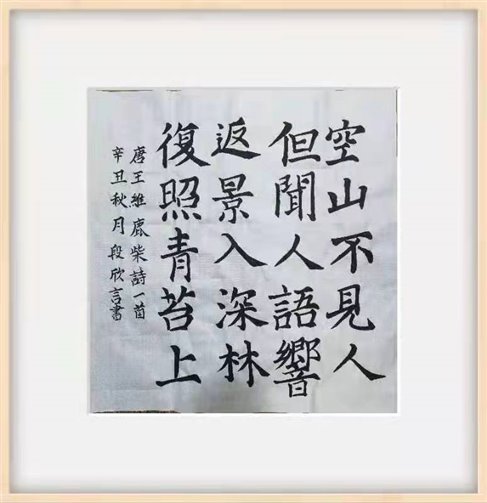 空山不見人
但聞人語響
返景入深林
復照青苔上
唐王維鹿柴詩一首
辛丑秋月段欣言書